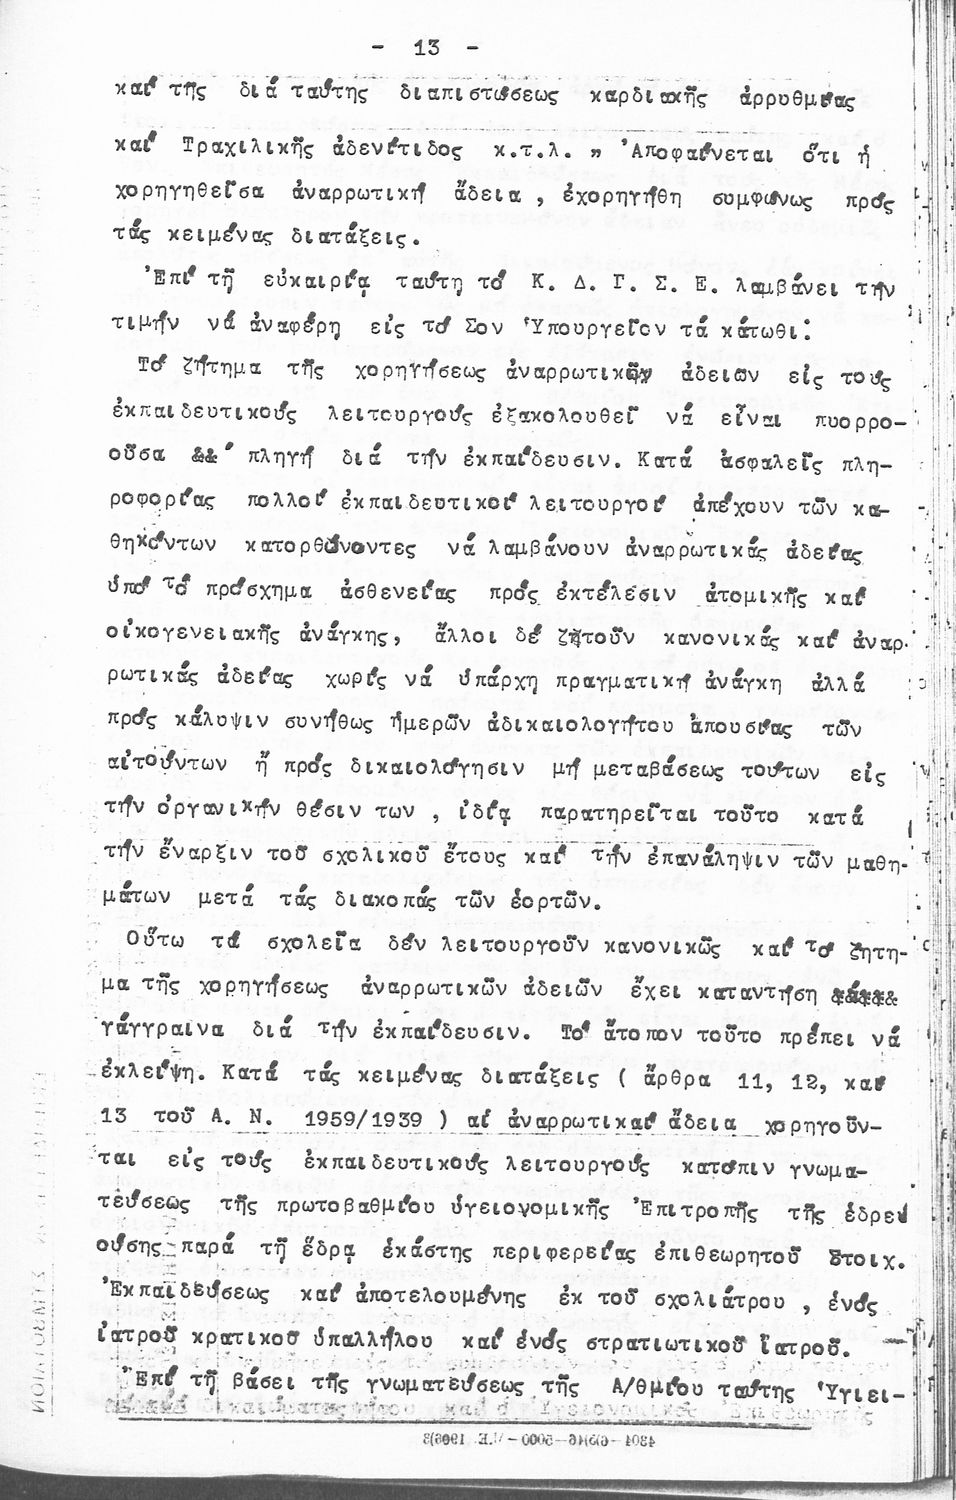 - 13 -
καί τῆς διά ταύτης διαπιστώσεως καρδιακῆς ἀρρυθμίας
καί Τραχιλικῆς ἀδενίτιδος κ.τ.λ. " Ἀποφαίνεται ὅτι ἡ
χορηγηθεῖσα ἀναρρωτική ἄδεια , ἐχορηγήθη συμφώνως πρός
τάς κειμένας διατάξεις.
Ἐπί τῇ εὐκαιρίᾳ ταύτῃ τό Κ. Δ. Γ. Σ. Ε. λαμβάνει τήν
τιμήν νά ἀναφέρῃ εἰς τό Σον Ὑπουργεῖον τά κάτωθι:
Τό ζήτημα τῆς χορηγήσεως ἀναρρωτικῶν ἀδειῶν εἰς τούς
ἐκπαιδευτικούς λειτουργούς ἐξακολουθεῖ νά εἶναι πυορρο-
οῦσα πληγή διά τήν ἐκπαίδευσιν. Κατά ἀσφαλεῖς πλη-
ροφορίας πολλοί ἐκπαιδευτικοί λειτουργοί ἀπέχουν τῶν κα-
θηκόντων κατορθώνοντες νά λαμβάνουν ἀναρρωτικάς ἀδείας
ὑπό τό πρόσχημα ἀσθενείας πρός ἐκτέλεσιν ἀτομικῆς καί
οἰκογενειακῆς ἀνάγκης, ἄλλοι δέ ζητοῦν κανονικάς καί ἀναρ-
ρωτικάς ἀδείας χωρίς νά ὑπάρχῃ πραγματική ἀνάγκη ἀλλά
πρός κάλυψιν συνήθως ἡμερῶν ἀδικαιολογήτου ἀπουσίας τῶν
αἰτούντων ἤ πρός δικαιολόγησιν μή μεταβάσεως τούτων εἰς
τήν ὀργανικήν θέσιν των , ἰδίᾳ παρατηρεῖται τοῦτο κατά
τήν ἔναρξιν τοῦ σχολικοῦ ἔτους καί τήν ἐπανάληψιν τῶν μαθη-
μάτων μετά τάς διακοπάς τῶν ἑορτῶν.
Οὕτω τά σχολεῖα δέν λειτουργοῦν κανονικῶς καί τό ζητη-
μα τῆς χορηγήσεως ἀναρρωτικῶν ἀδειῶν ἔχει καταντήσῃ
γάγγραινα διά τήν ἐκπαίδευσιν. Τό ἄτοπον τοῦτο πρέπει νά
ἐκλείψῃ. Κατά τάς κειμένας διατάξεις ( ἄρθρα 11, 12, καί
13 τοῦ Α. Ν. 1959/1939 ) αἱ ἀναρρωτικαί ἄδεια χορηγοῦν-
ται εἰς τούς ἐκπαιδευτικούς λειτουργούς κατόπιν γνωμα-
τεύσεως τῆς πρωτοβαθμίου ὑγειονομικῆς Ἐπιτροπῆς τῆς ἑδρευ
ούσης παρά τῇ ἕδρᾳ ἑκάστης περιφερείας ἐπιθεωρητοῦ Στοιχ.
Ἐκπαιδεύσεως καί ἀποτελουμένης ἐκ τοῦ σχολιάτρου , ἑνός
ἰατροῦ κρατικοῦ ὑπαλλήλου καί ἑνός στρατιωτικοῦ ἰατροῦ.
Ἐπί τῇ βάσει τῆς γνωματεύσεως τῆς Α/θμίου ταύτης Ὑγιει-